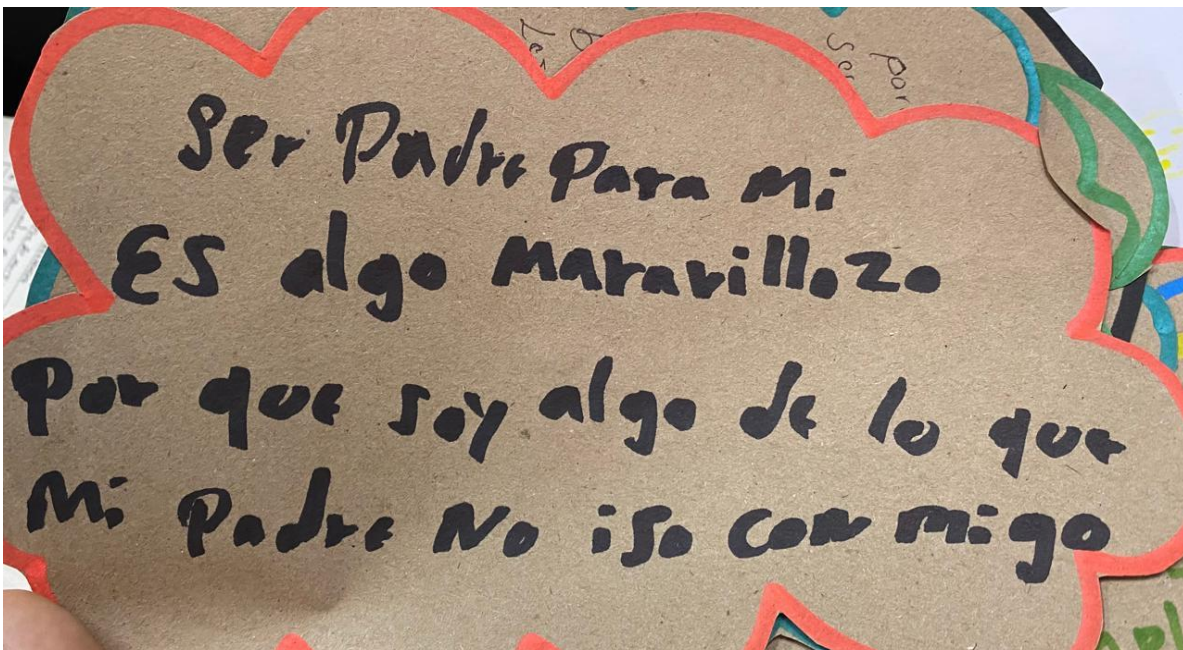 por
ser
Ser Padre Para Mi
ES algo Maravillozo
Por que soy algo de lo que
Mi Padre No iso con migo